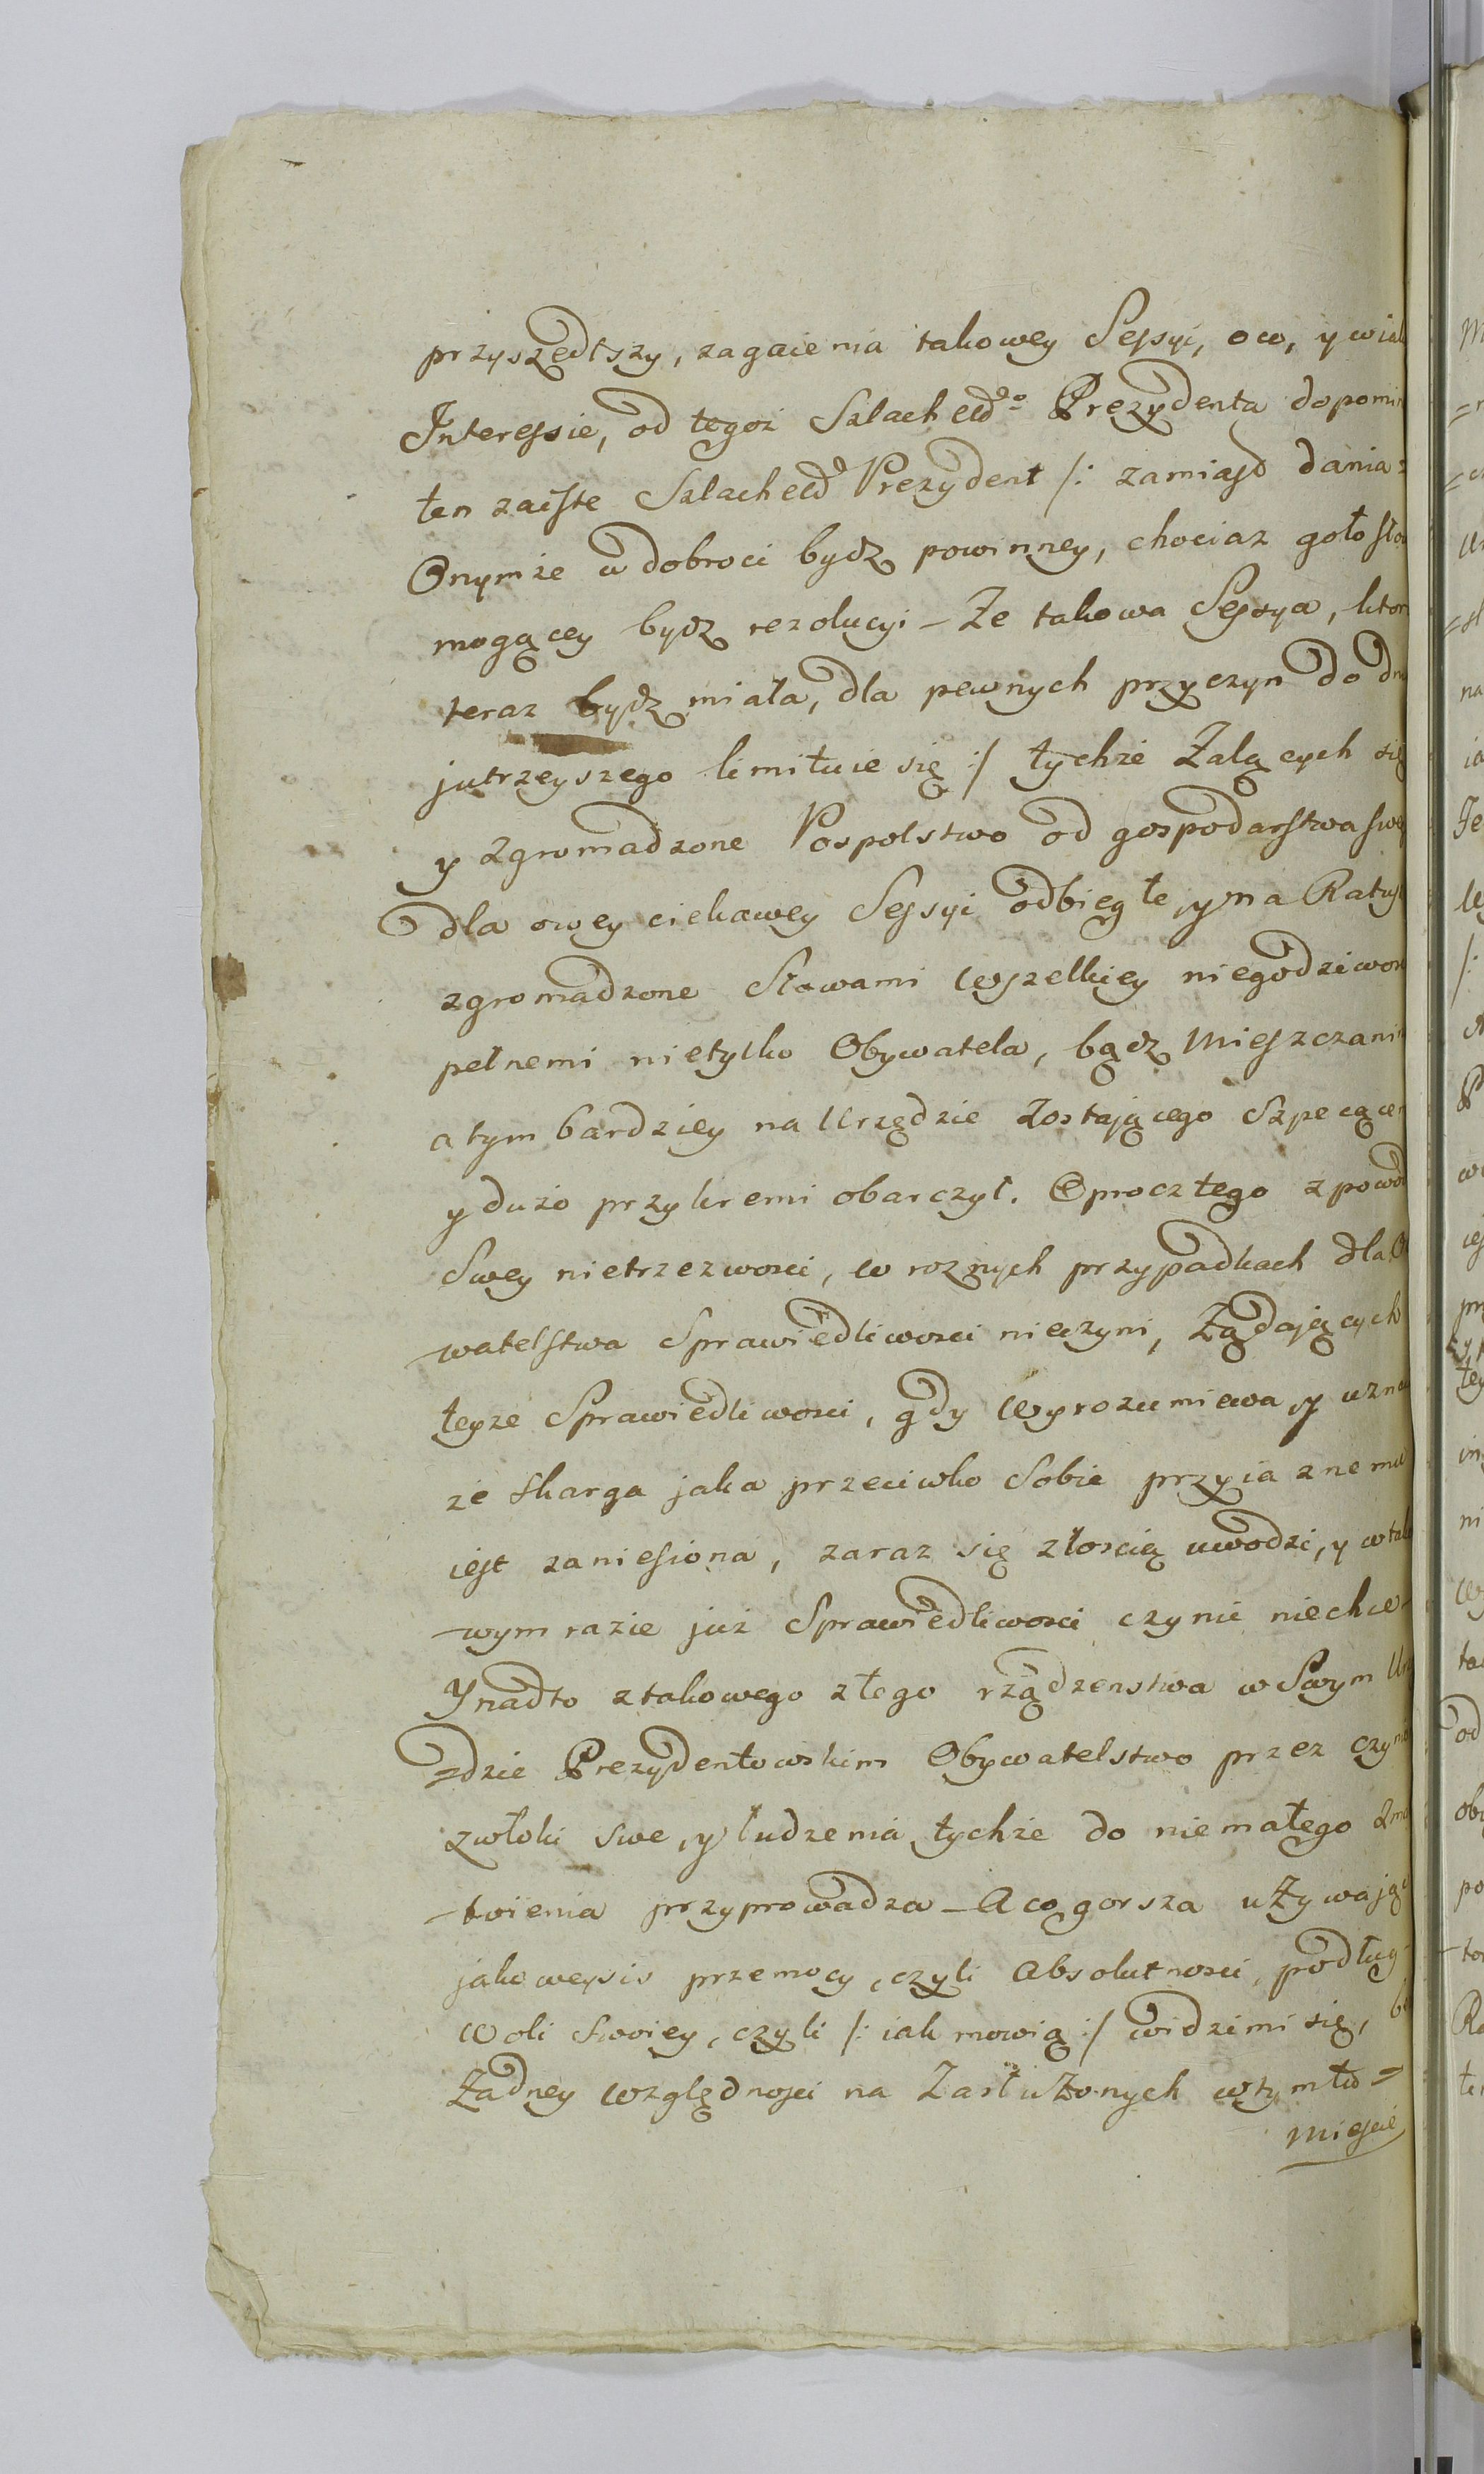 przyszedłszy, zagaienia takowey Sessyi, o co, y w iak
Interessie, od tegoż Szlachetdgo Prezydenta dopomin
ten zaiste Szlachetd Prezydent /: zamiast dania
Onymże w dobroci bydz powinney, chociaz goło sło
mogącey bydz rezolucyi - Ze takowa Sessya, ktor
teraz bydz miała, dla pewnych przyczyn do dn
jutrzeyszego limituie się :/ tychże Zalących się
y zgromadzone Pospolstwo od gospodarstwa swe
dla owey ciekawey Sessyi odbiegłe, y na Ratus
zgromadzone Słowami wszelkiey niegodziwos
pełnemi nietylko Obywatela, bądz Mieszczani
a tym bardziey na Urzędzie Zostającego Szpecące
y dużo przykremi obarczył. Oprocz tego z powod
Swey nietrzezwosci, w roznych przypadkach dla O
-watelstwa Sprawiedliwosci nieczyni, Ządających
teyze Sprawiedliwosci, gdy wyrozumiewa, y uzna
ze skarga jaka przeciwko Sobie przyiaznemu
iest zaniesiona, zaraz się złoscią uwodzi, y w tak
-wym razie już Sprawiedliwosci czynić niechce
Y nadto z takowego złego rządzenstwa w Swym Ur
zdzie Prezydentowskim Obywatelstwo przez czyn
zwłoki swe, y łudzenia tychże do niemałego
-twienia przyprowadza - A co gorsza uzywają
jakoweysis przemocy, czyli Absolutnosci, podług
woli Swoiey, czyli /: iak mowią :/ widzimi się, b
Zadney względnosci na Zasłuzonych w tym tu =
Miescie